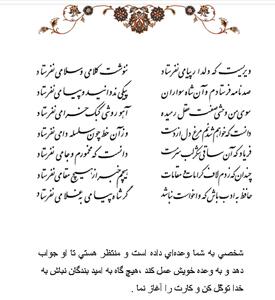 دیریست که دلدار پیامی نفرستاد ننوشت کلامی و سلامی نفرستاد
صد نامه فرستادم و آن شاه سواران پیکی ندوانید و پیامی نفرستاد
سوی من وحشی صفت عقل رمیده آهو روشی کبک خرامی نفرستاد
دانست که خواهد شدنم مرغ دل از دست وز آن خط چون سلسله دامی نفرستاد
فریاد که آن ساقی شکر لب سرمست دانست که مخمورم و جامی نفرستاد
چندان که زدم لاف کرامات و مقامات هیچم خبر از هیچ مقامی نفرستاد
حافظ به ادب باش که واخواست نباشد گر شاه پیامی به غلامی نفرستاد
شخصي به شما وعده‌اي داده است و منتظر هستي تا او جواب
دهد و به وعده خویش عمل کند ،هیچ گاه به امید بندگان نباش به
خدا توکل کن و کارت را آغاز نما .